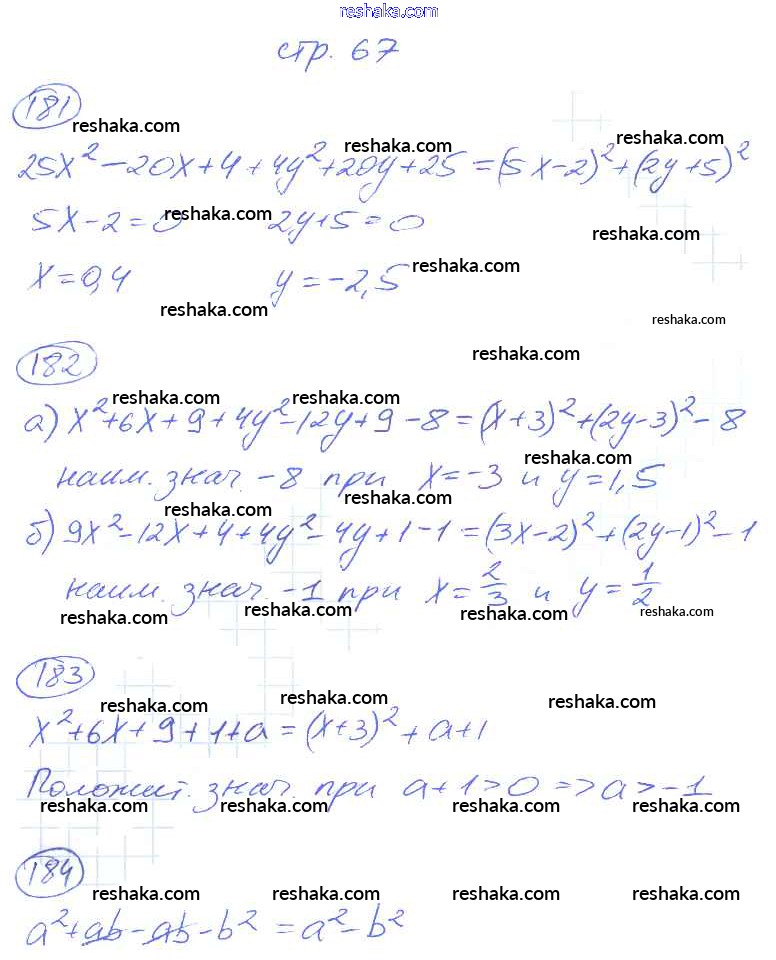 reshaka.com
стр. 67
181
reshaka.com
reshaka.com
reshaka.com
25x² - 20x + 4 + 4y² + 20y + 25 = (5x - 2)² + (2y + 5)²
5x - 2 = 0 2y + 5 = 0
reshaka.com
reshaka.com
x = 0,4 y = -2,5
reshaka.com
reshaka.com
reshaka.com
182
reshaka.com
reshaka.com
reshaka.com
а) x² + 6x + 9 + 4y² - 12y + 9 - 8 = (x + 3)² + (2y - 3)² - 8
reshaka.com
наим. знач. -8 при x = -3 и y = 1,5
reshaka.com
reshaka.com
б) 9x² - 12x + 4 + 4y² - 4y + 1 - 1 = (3x - 2)² + (2y - 1)² - 1
наим. знач. -1 при x = 2/3 и y = 1/2
reshaka.com
reshaka.com
reshaka.com
reshaka.com
183
reshaka.com
reshaka.com
reshaka.com
x² + 6x + 9 + 1 + a = (x + 3)² + a + 1
Положит. знач. при a + 1 > 0 => a > -1
reshaka.com
reshaka.com
reshaka.com
reshaka.com
184
reshaka.com
reshaka.com
reshaka.com
reshaka.com
a² + ab - ab - b² = a² - b²